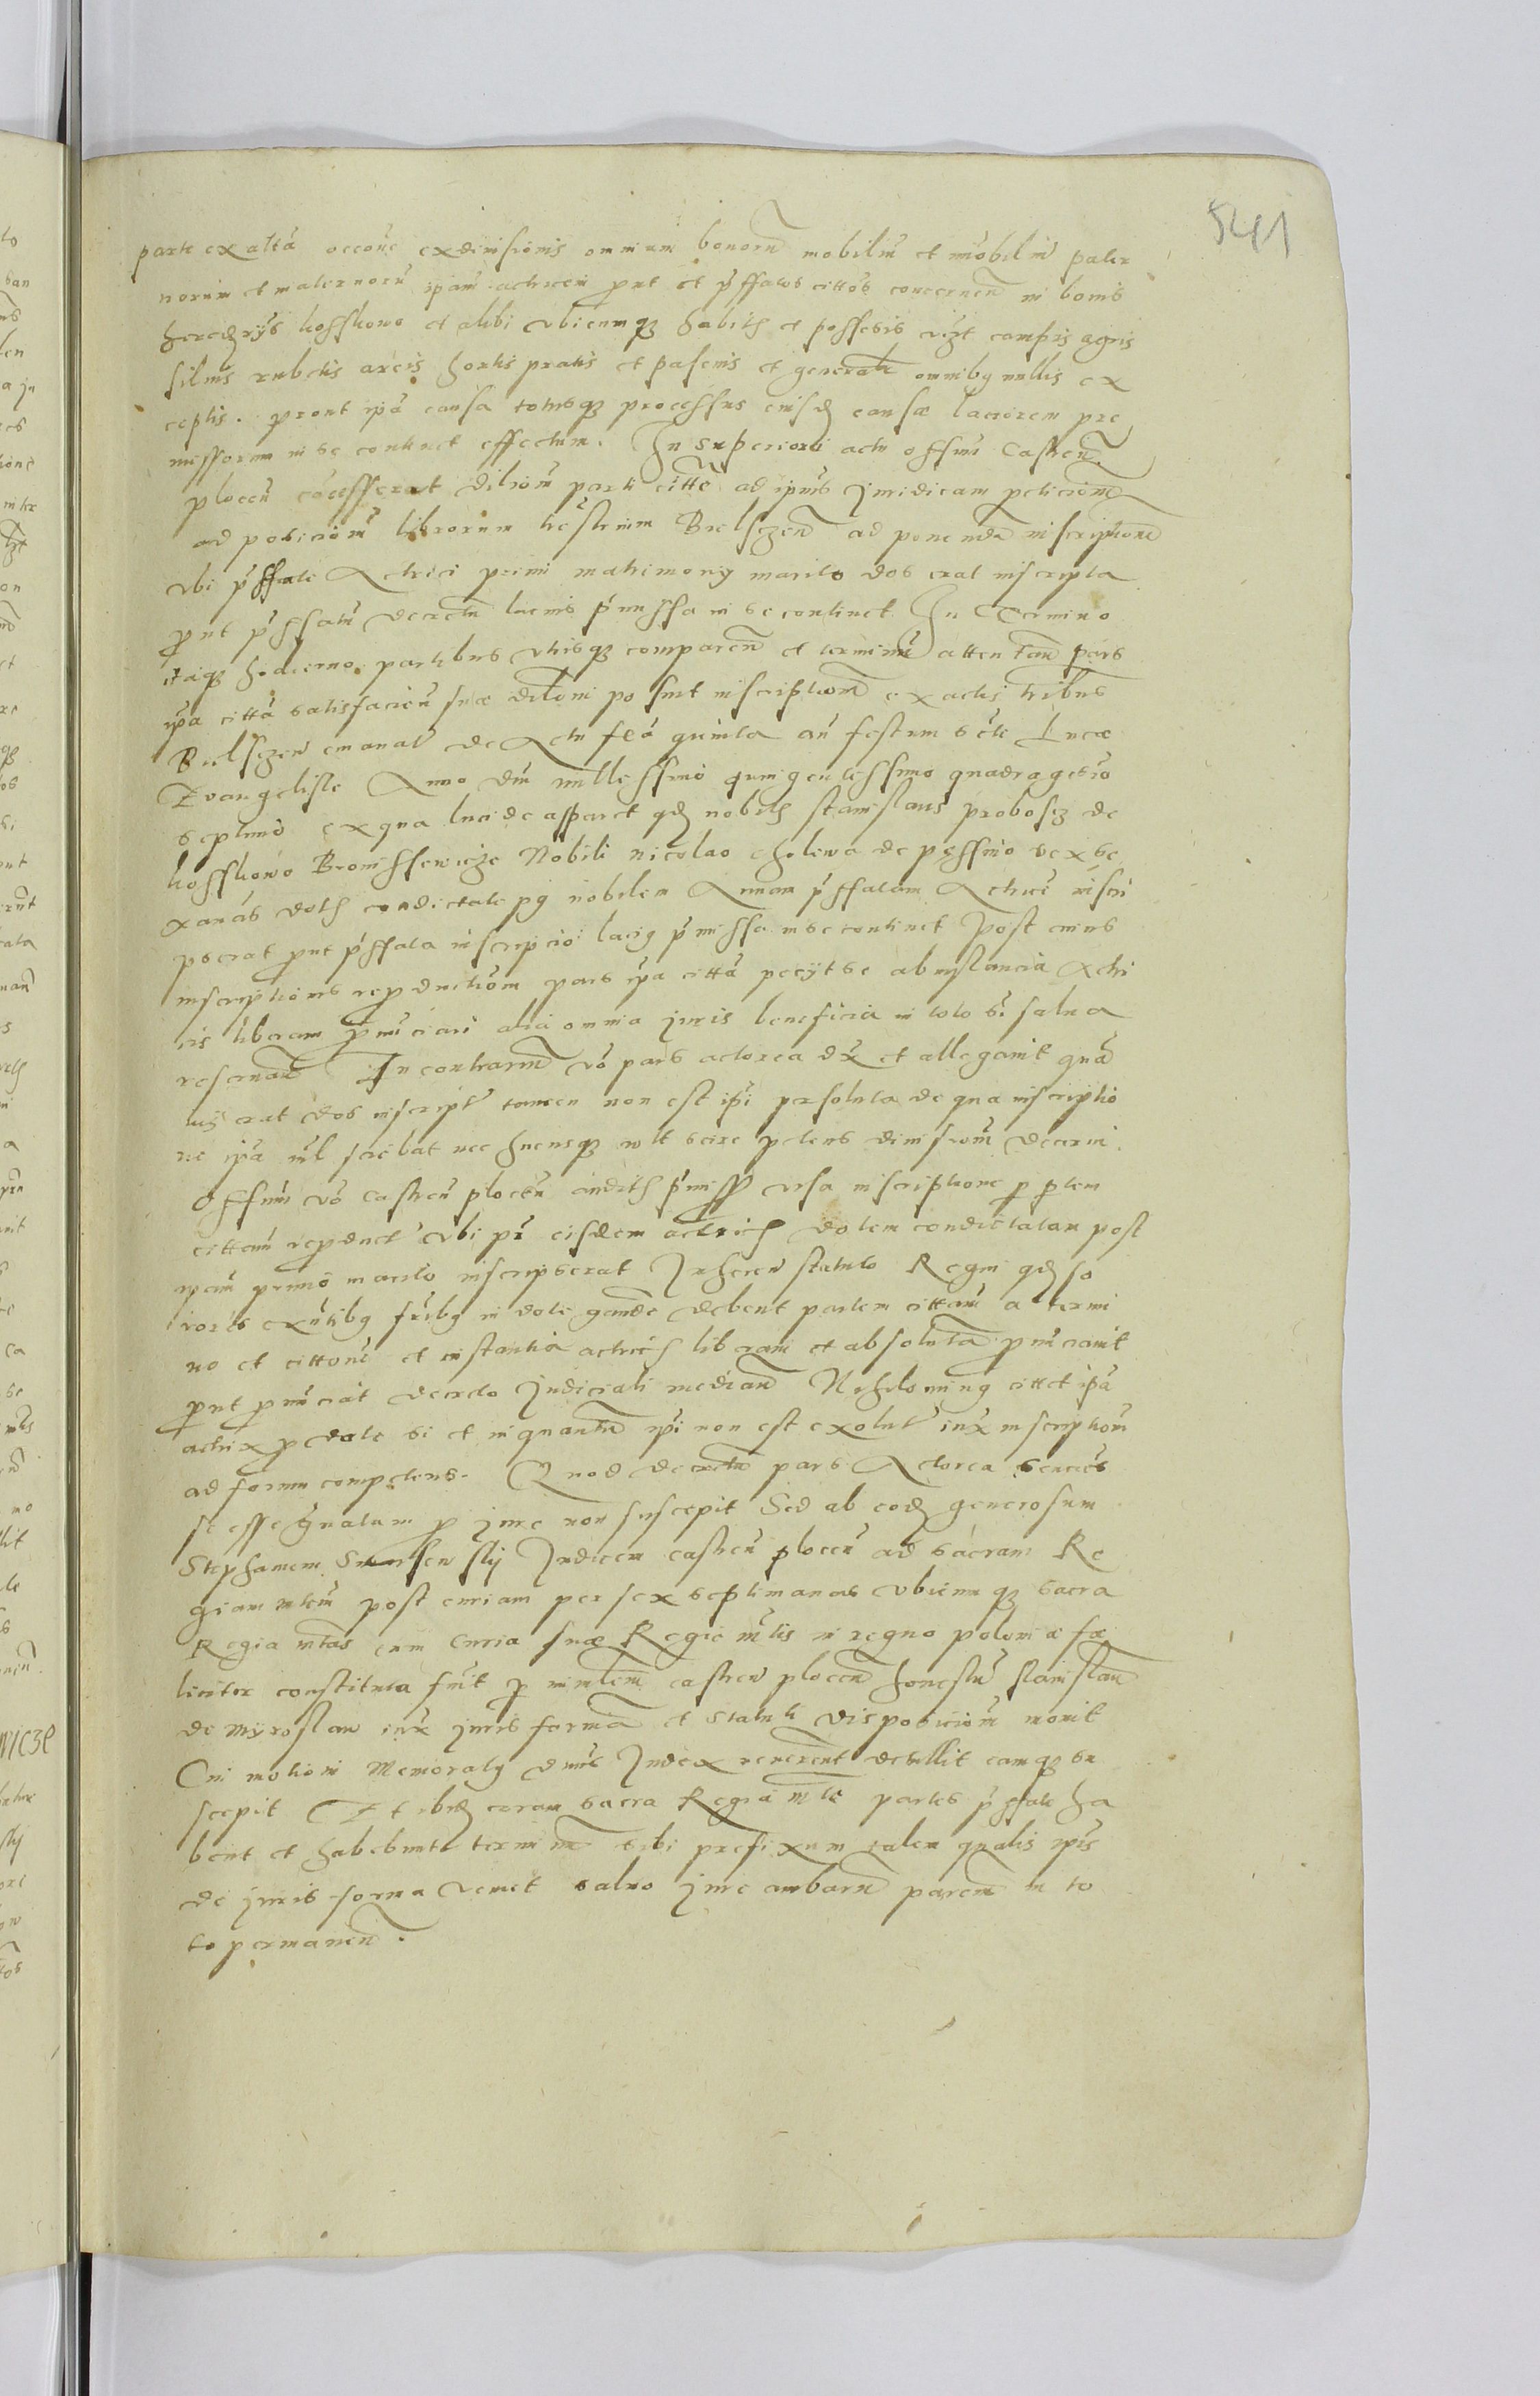 541
parte ex altá occoné ex divisionis omnium bonorũ mobiliũ et imobiliũ pater
norum et maternorũ ipam actricem prout et pffatos cittos concernen in bonis
heredrijs kosskowo et alibi vbicumqz habitis et possesis vizt campis agris
silvis rubetis areis hortis pratis et pascuis et generali omnibq nullis ex
ceptis. prout ipa causa totusqz processus eiusd causæ laciorem pre
missorum in se continet effectum. In superiori actu offium Castren
plocen cocesserat dilaom parti citte ad ipius juridicam peticionē
ad posicioñ librorum trestrium Bielscen ad ponenda inscriptione
vbi pffate Actrici primi matrimonij marito dos erat inscripta
prout pffatũ decretũ lacius pmissa in se continet In Termino
itaqz hodierno partibus vtrisqz comparen et terminũ attentan pars
ipa citta satisfacien suæ dilaoni posuit inscriptione ex actis tribus
Bielscen emanat de Actu feá quinta an festum scti Lucæ
Evangeliste Anno dni millessimo quingentessimo quadragesio
septimo ex qua lucide apparet qd nobilis stanislaus probosz de
kosskowo Bronissewicze Nobili nicolao cholewa de
xanás dotis condictate pq nobilem Annam pffatam Actricẽ inscri
pserat prout pffata inscripcio laciq pmissa in se continet Post cuius
inscriptionis reproductioñ pars ipa citta pecijt se ab instancia Actri
cis liberam pnuciari alia omnia juris beneficia in toto si salva
reservan In contrariũ vo pars actorea dx et allegavit qua
uis erat dos inscript tamen non est ipi persoluta de qua inscriptio
ne ipa nil sciebat nec hucusqz vult scire petens divisioñ decerni.
Offium vo castren plocen auditis pmiss visa inscriptione p ptem
cittam reproduct vbi pr eisdem actricis dotem condictatam post
ipam primo marito inscripserat Inheren statuto Regni qd so
rores exntibq fribq in dote gaude debent partem cittam a termi
no et cittone et instantia actricis liberam et absoluta pnuciavit
prout pnuciat decreto judiciali median Nihilominq cittet ipa
actrix p dote si et in quantũ ipi non est exolut iux inscriptioñ
ad forum competens. Quod decretũ pars Actorea senciẽs
se esse gravatam p jure non suscepit Sed ab eod generosum
Stephanem Judicem castren plocen ad sacram Re
giam mtem post curiam per sex septimanas vbicumqz sacra
Regia mtas cum Curia suæ Regie mtis in regno poloniæ fæ
liciter constituta fuit p castren plocen honestũ stanislaũ
de myroslaw iux juris forma et statuti disposicioñ movit
Cui motioni Memoratq dnus Judex reverent detullit eamqz su
scepit Et ibid coram sacra Regia mte partes pffate ha
bent et habebunt terminũ sibi prefixum talem qualis ipis
de juris forma venit salvo jure ambarũ parciũ in to
to permanen.